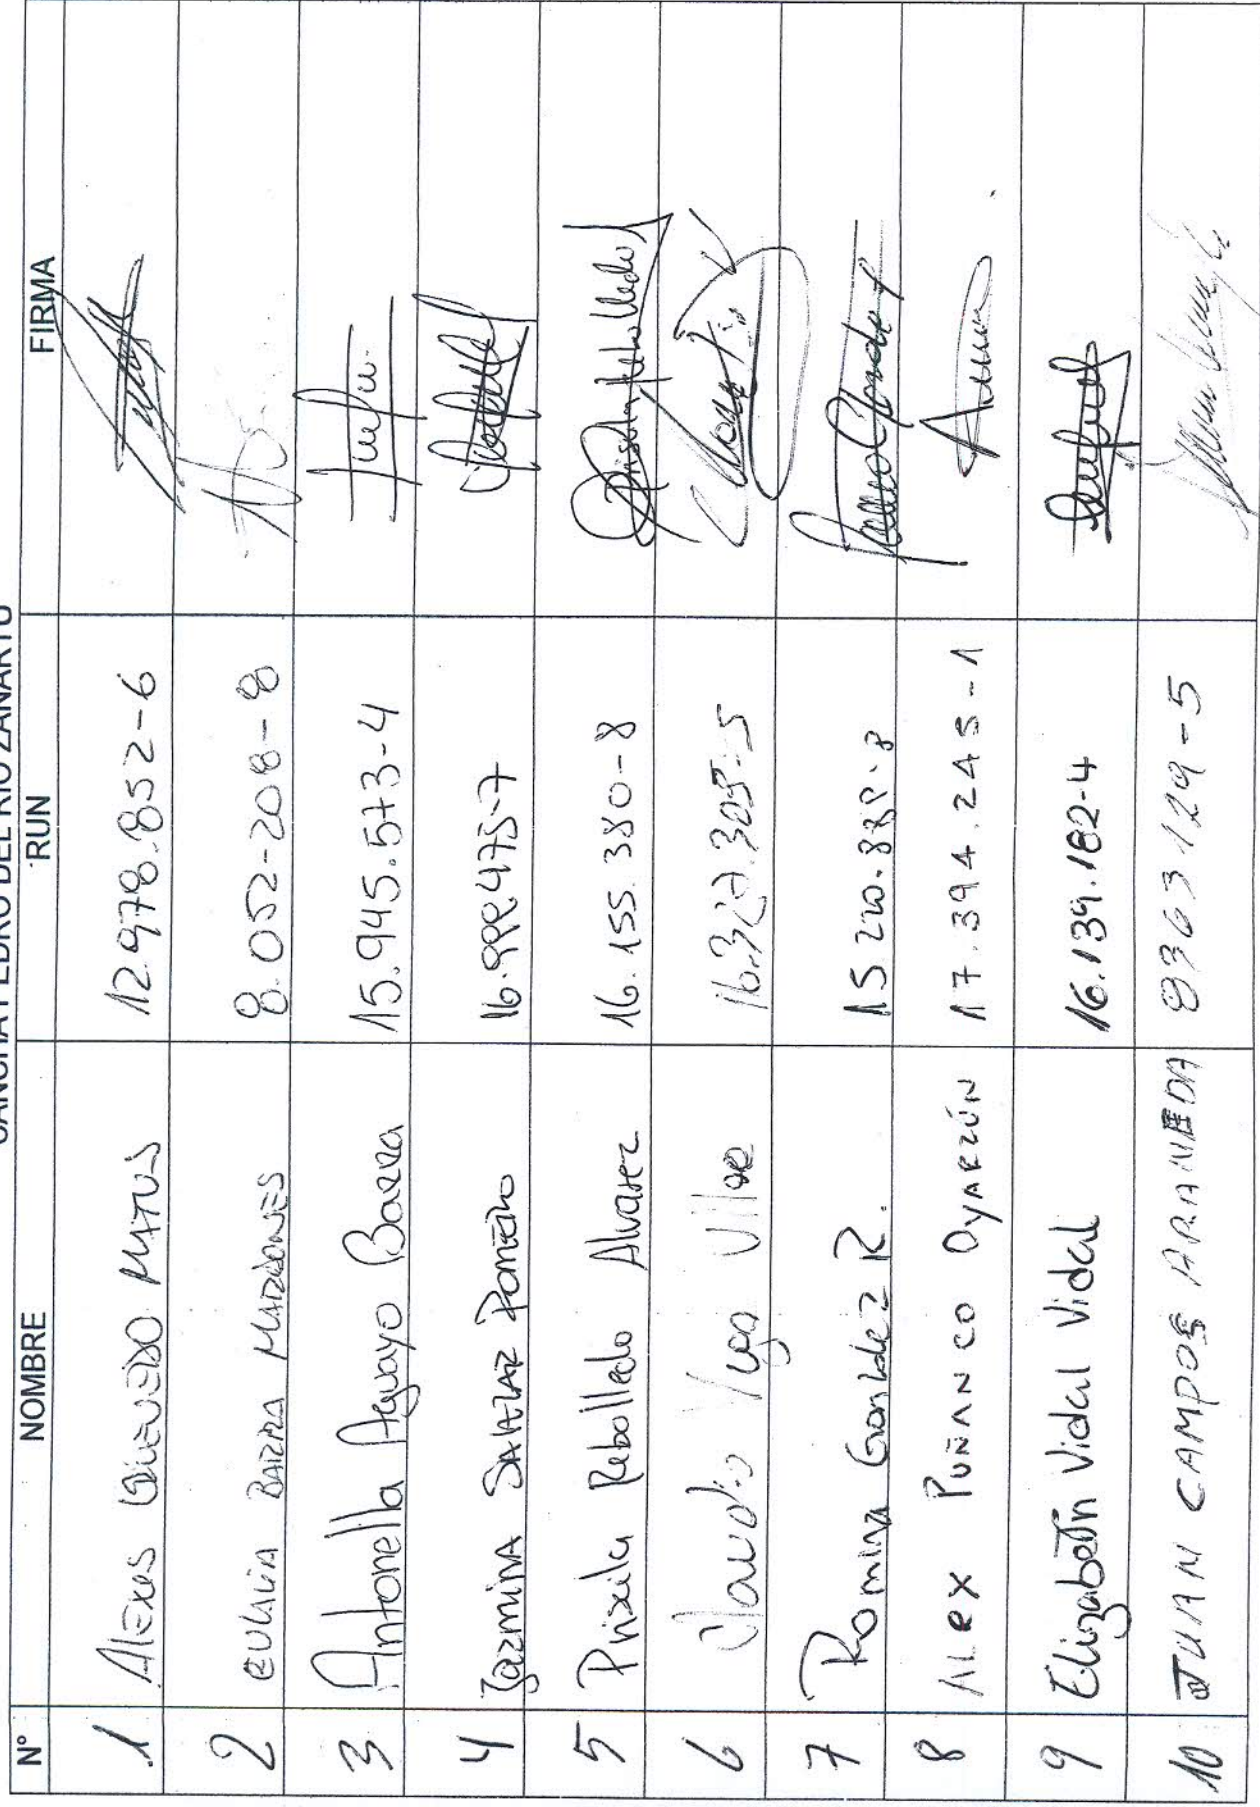 CANCHA PEDRO DEL RIO ZAÑARTU
N° NOMBRE RUN FIRMA
1 Alexis Quevedo Matus 12.978.852-6
2 Eulalia Barra Mardones 8.052-208-8
3 Antonella Aguayo Barra 15.945.573-4
4 Jazmina Salazar 16.999.475-7
5 Priscila Rebolledo Alvarez 16.155.380-8
6 Claudio Vega 16.327.305-5
7 Romina González R. 15.220.889-8
8 Alex Puñanco Oyarzún 17.394.245-1
9 Elizabeth Vidal Vidal 16.139.182-4
10 JUAN CAMPOS ARANEDA 8363129-5